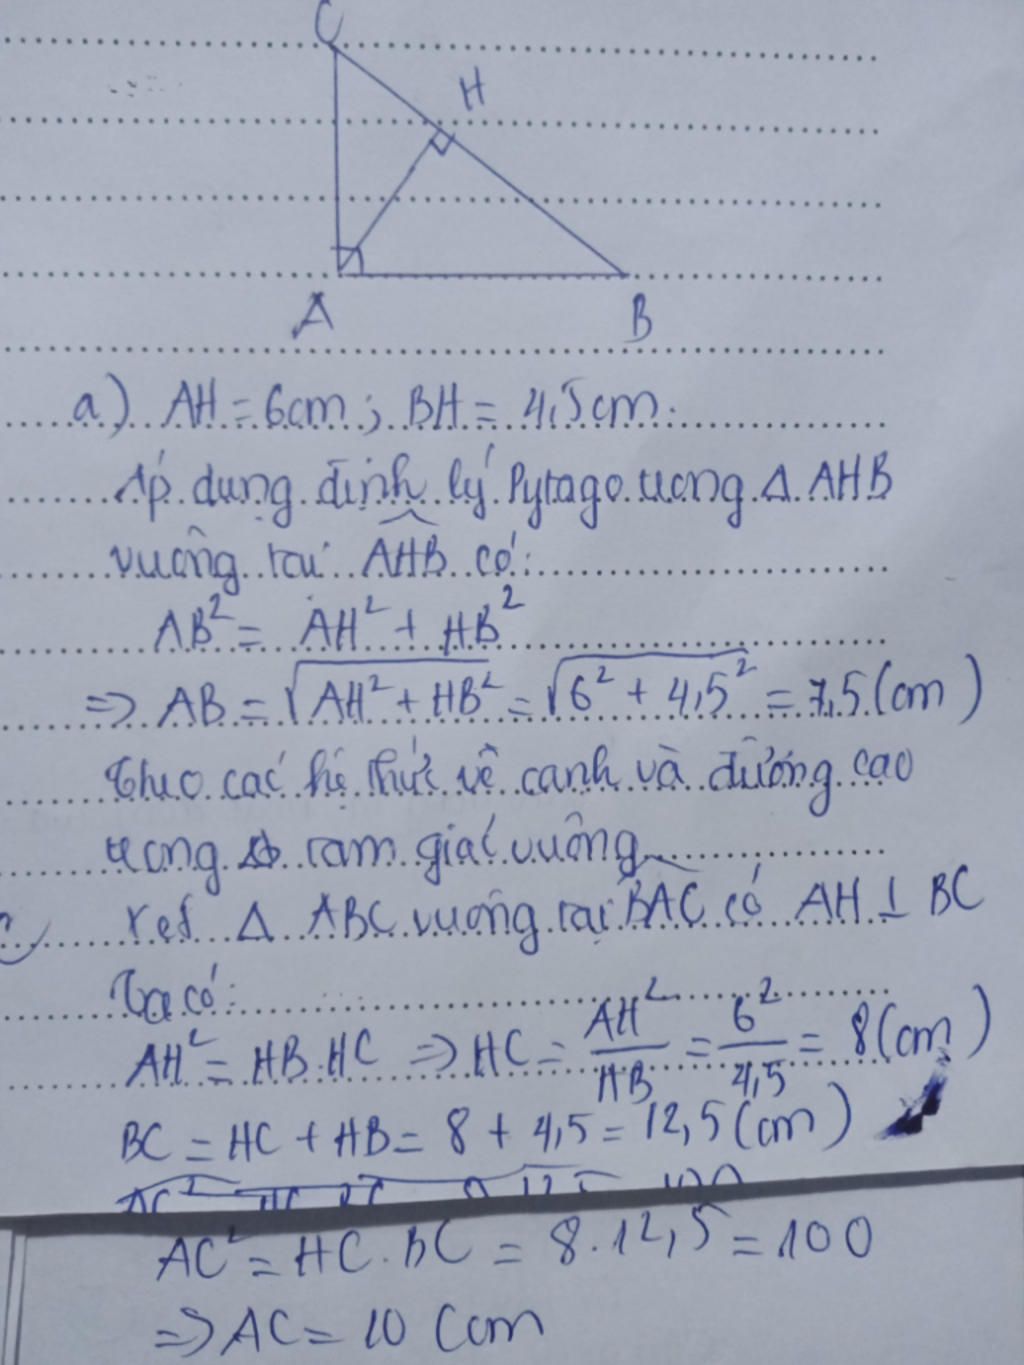 C
H
A
B
a) AH = 6cm ; BH = 4,5cm.
Áp dụng định lý Pytago trong Δ AHB
vuông tại AHB có:
AB² = AH² + HB²
=> AB = √AH² + HB² = √6² + 4,5² = 7,5 (cm)
Theo các hệ thức về cạnh và đường cao
trong tam giác vuông
Xét Δ ABC vuông tại BAC có AH ⊥ BC
Ta có:
AH² = HB.HC => HC = AH²/HB = 6²/4,5 = 8 (cm)
BC = HC + HB = 8 + 4,5 = 12,5 (cm)
AC² = HC.BC = 8.12,5 = 100
=> AC = 10 (cm